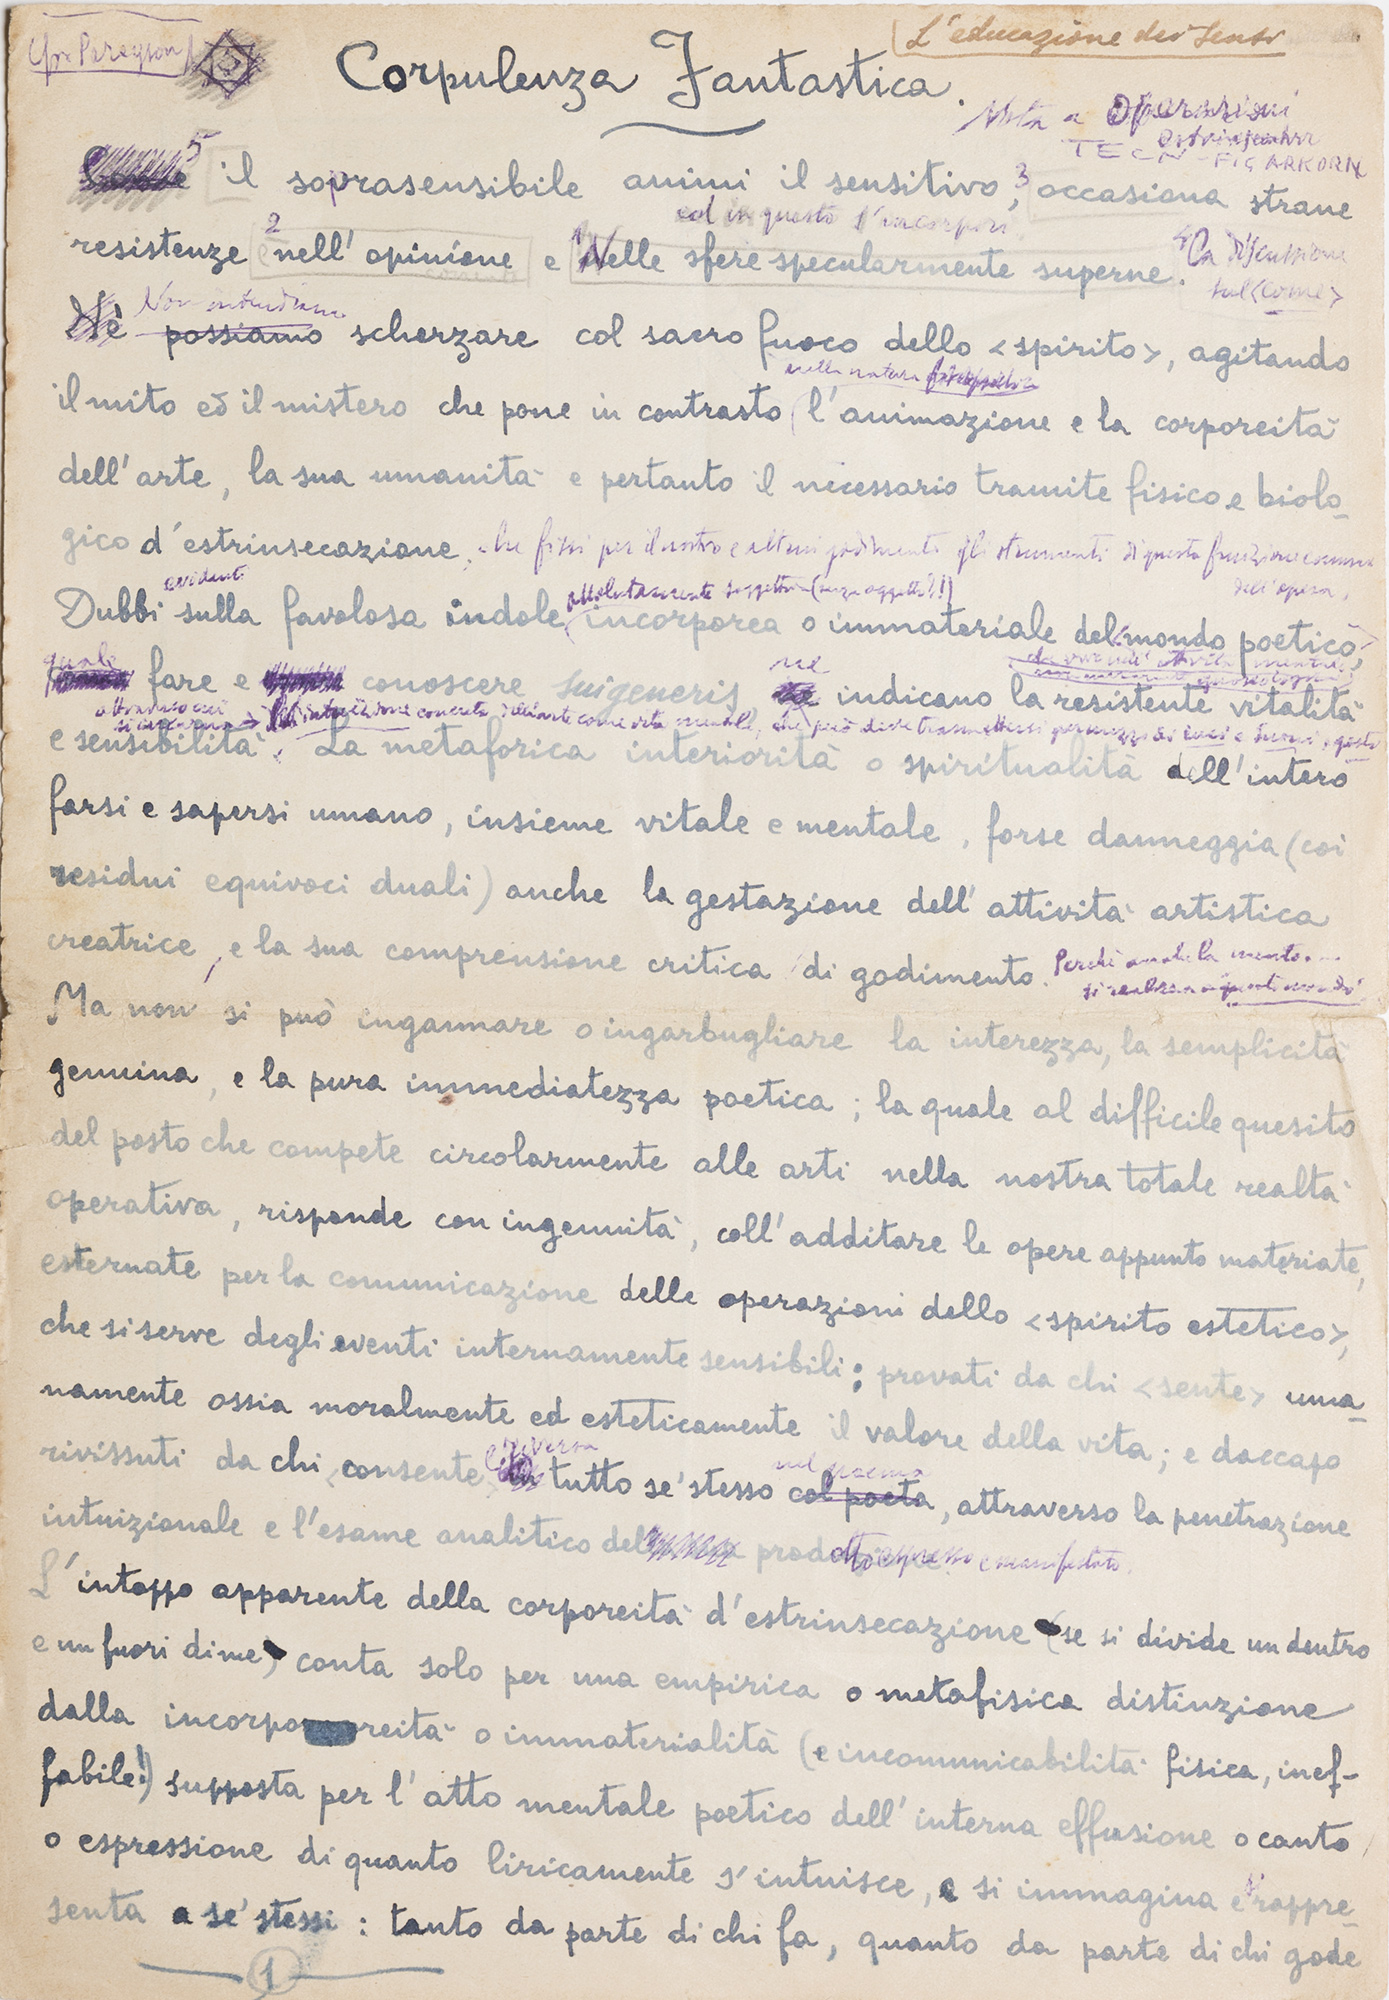 (per Pareyson)
L'educazione dei sensi
Corpulenza Fantastica.
Nota a Operazioni
estrinsecatrici
TECN-FIGARKORN
5 il soprasensibile animi il sensitivo, 3 occasiona strane
ed in questo s'incorpori
resistenze 2 nell'opinione e 1 Nelle sfere specularmente superne. 4 La discussione
sul <come>
Non intendiamo
Nè possiamo scherzare col sacro fuoco dello <spirito>, agitando
nella natura
il mito ed il mistero che pone in contrasto l'animazione e la corporeità
dell'arte, la sua umanità e pertanto il necessario tramite fisico e biolo-
gico d'estrinsecazione, che fissi per il nostro e altrui godimento gli strumenti di questa funzione comune
dell'opera.
evidenti
assolutamente soggettiva (senza oggetti?!)
Dubbi sulla favolosa indole incorporea o immateriale del <mondo poetico>,
quale
ne
fare e conoscere sui generis, indicano la resistente vitalità
attraverso cui
intuizione concreta dell'arte come vita mentale, che può deve trasmettersi per mezzo di luci e suoni, gesti
e sensibilità. La metaforica interiorità o spiritualità dell'intero
farsi e sapersi umano, insieme vitale e mentale, forse danneggia (coi
residui equivoci duali) anche la gestazione dell'attività artistica
creatrice, e la sua comprensione critica di godimento. Perchè anche la mente...
si realizza a questo mondo!
Ma non si può ingannare o ingarbugliare la interezza, la semplicità
genuina, e la pura immediatezza poetica; la quale al difficile quesito
del posto che compete circolarmente alle arti nella nostra totale realtà
operativa, risponde con ingenuità, coll'additare le opere appunto materiate,
esternate per la comunicazione delle operazioni dello <spirito estetico>,
che si serve degli eventi internamente sensibili: provati da chi <sente> uma-
namente ossia moralmente ed esteticamente il valore della vita; e daccapo
riversa
nel poema
rivissuti da chi consente tutto se' stesso col poeta, attraverso la penetrazione
intuizionale e l'esame analitico del prodotto espresso e manifestato.
L'intoppo apparente della corporeità d'estrinsecazione (se si divide un dentro
e un fuori di me) conta solo per una empirica o metafisica distinzione
dalla incorporeità o immaterialità (e incomunicabilità fisica, inef-
fabile!) supposta per l'atto mentale poetico dell'interna effusione o canto
o espressione di quanto liricamente s'intuisce, e si immagina e rappre-
senta a se' stessi: tanto da parte di chi fa, quanto da parte di chi gode
1